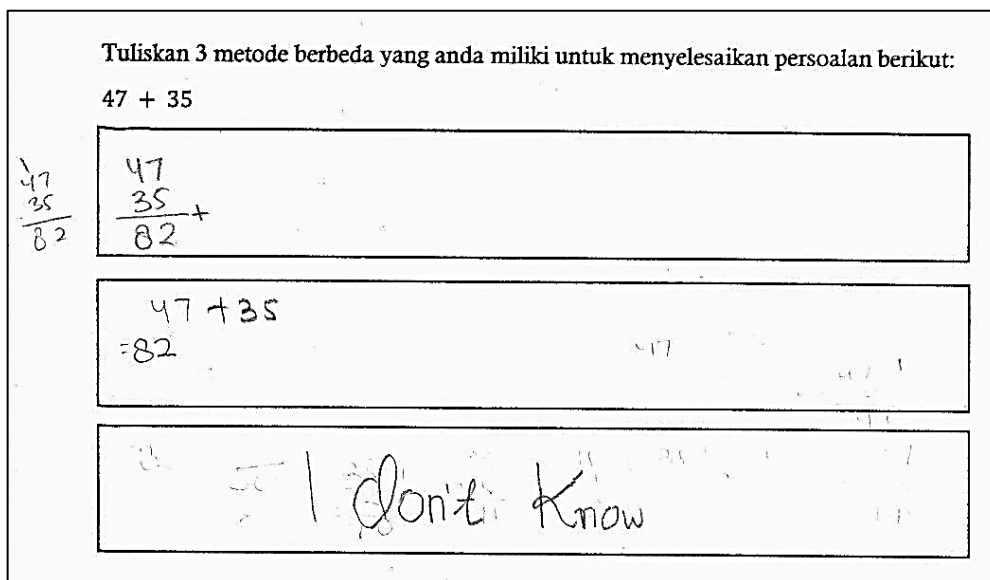 Tuliskan 3 metode berbeda yang anda miliki untuk menyelesaikan persoalan berikut:
47 + 35
1
47
35
82
47
35 +
82
47 + 35
= 82
I don't know